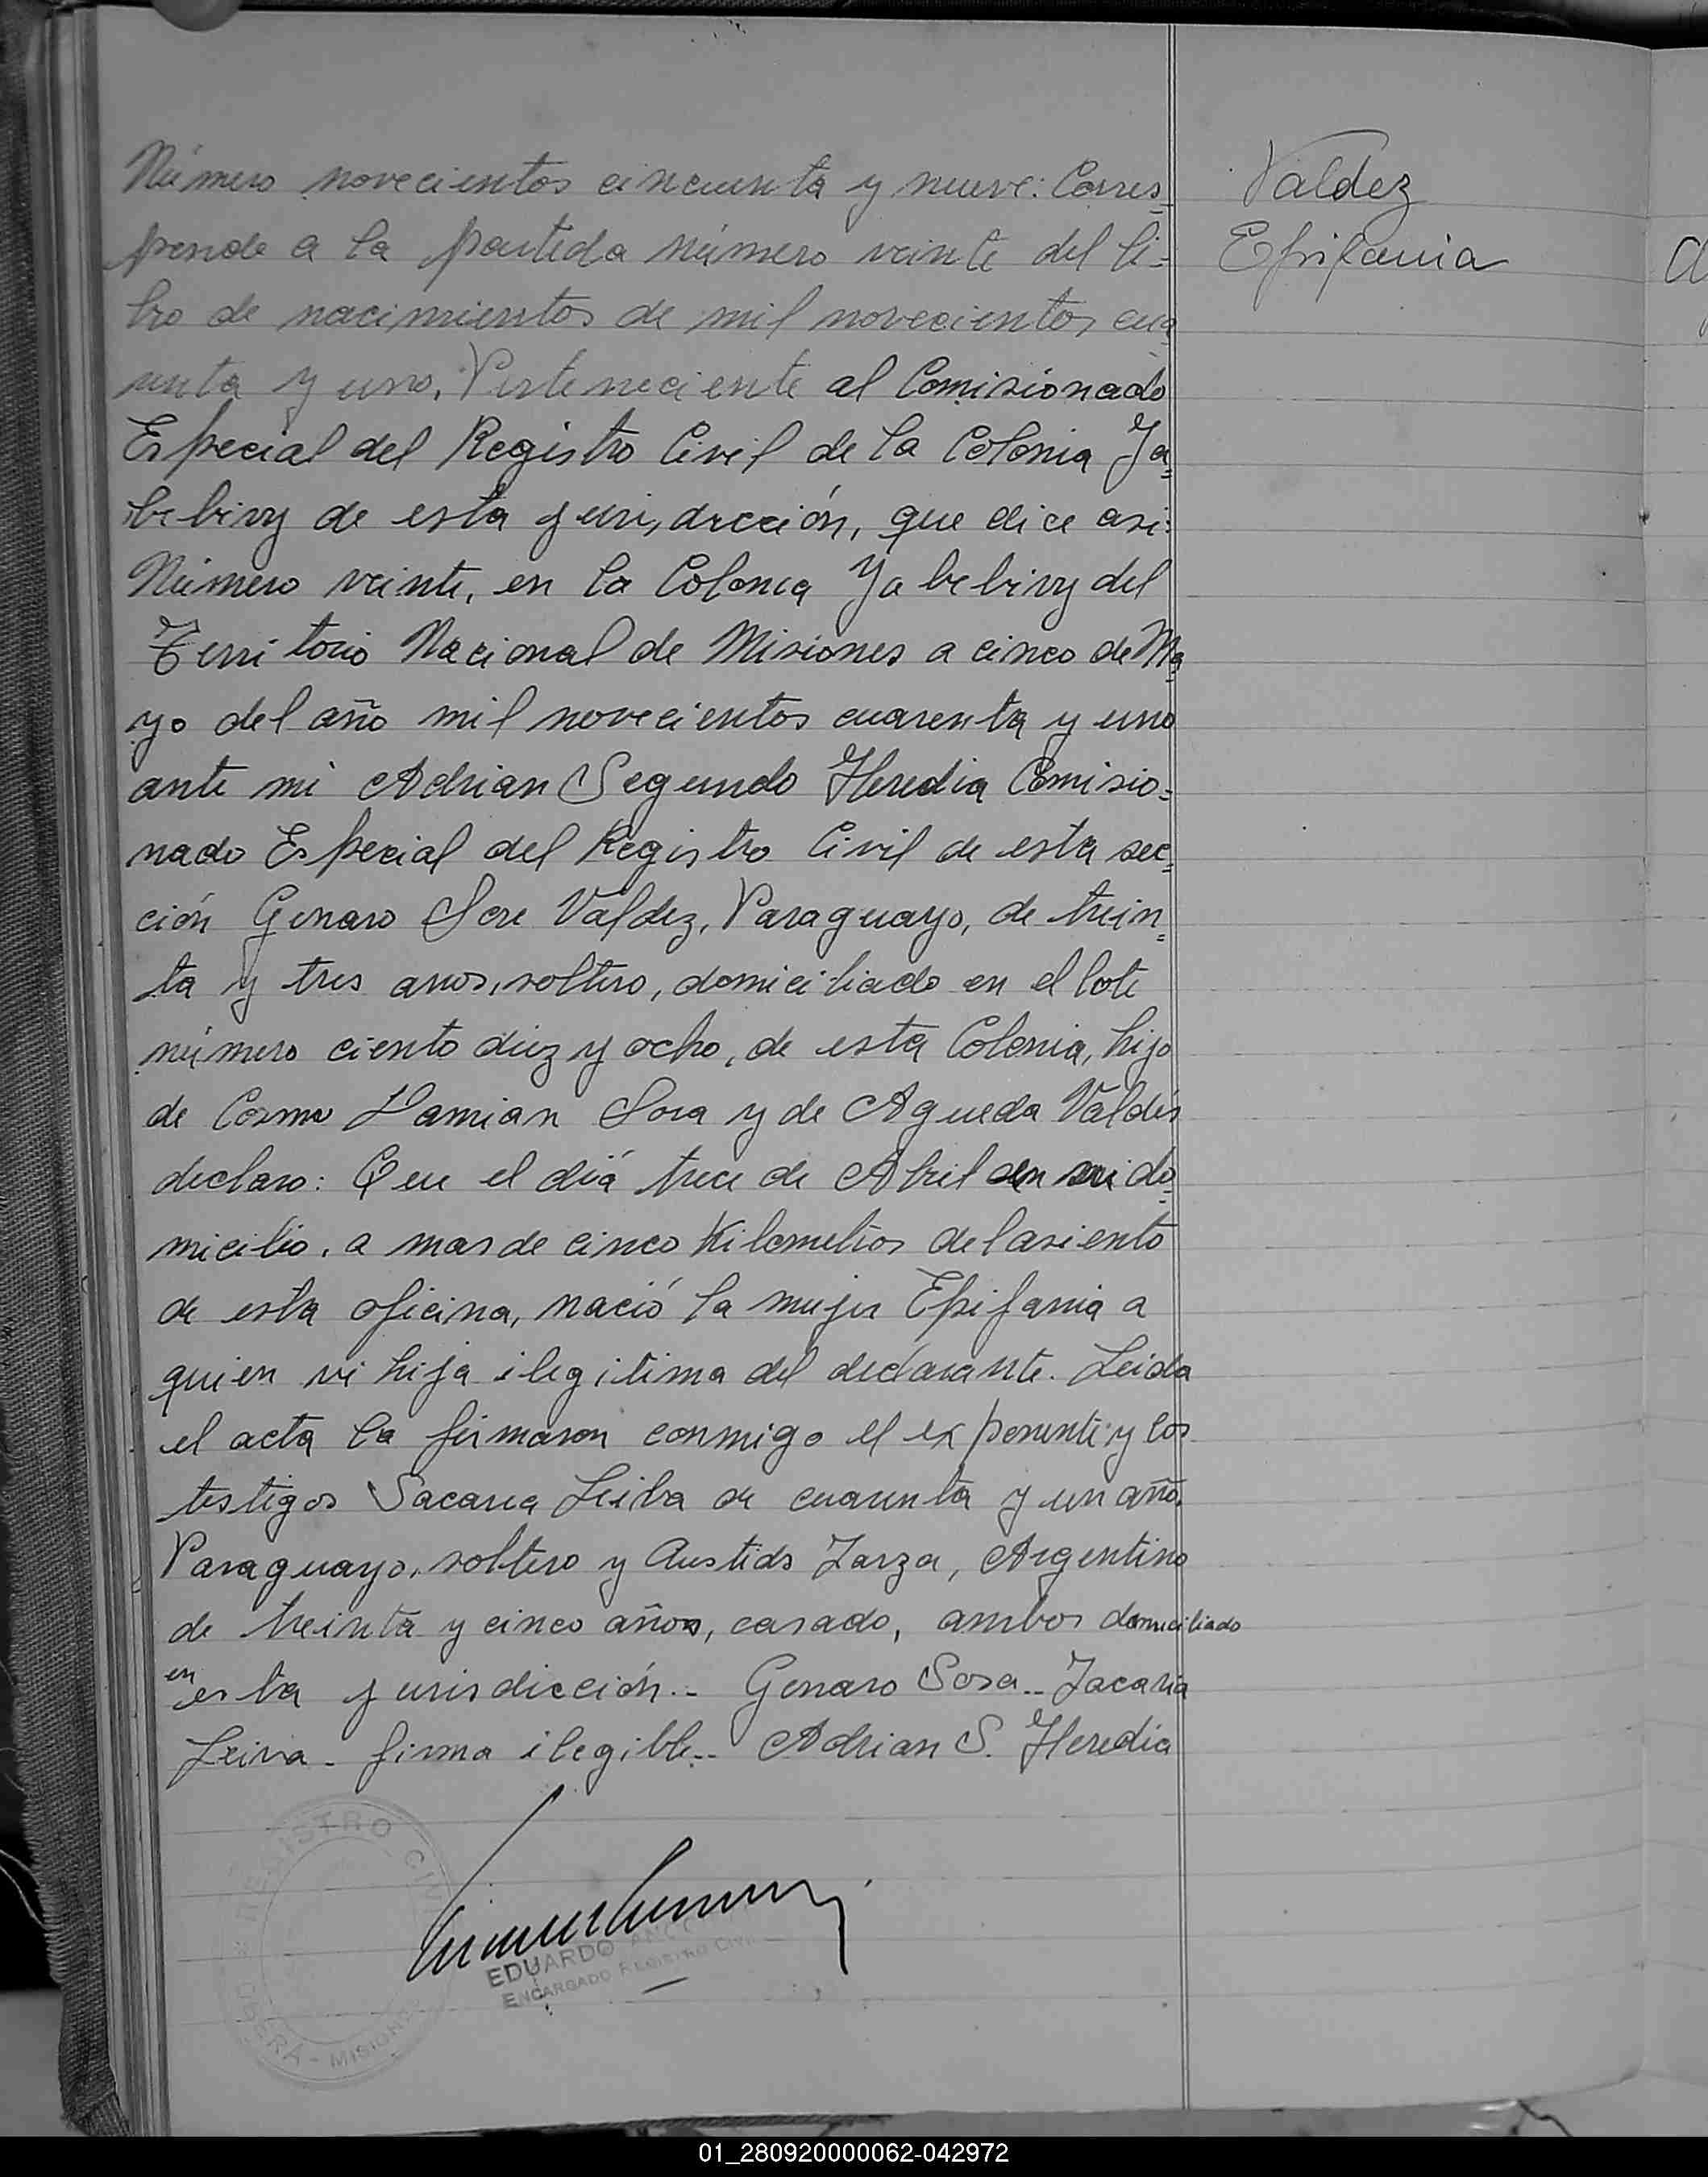 Valdez
Epifania
Número novecientos cincuenta y nueve: Corres=
ponde a la partida número veinte del li=
bro de nacimientos de mil novecientos cua
renta y uno. Perteneciente al Comisionado
Especial del Registro Civil de la Colonia Ya=
bebiry de esta jurisdicción, que dice asi:
Número veinte, en la Colonia Yabebiry del
Territorio Nacional de Misiones a cinco de Ma=
yo del año mil novecientos cuarenta y uno
ante mi Adrian Segundo Heredia Comisio=
nado Especial del Registro Civil de esta sec=
ción Genaro Valdez, Paraguayo, de trein=
ta y tres anos, soltero, domiciliado en el lote
número ciento diez y ocho, de esta Colonia, hijo
de Cosme Damian Sosa y de Agueda Valdés
declaro: Que el diá trece de Abril en su do=
micilio, a mas de cinco Kilometros del asiento
de esta oficina, nació la mujer Epifania a
quien vi hija ilegitima del declarante. Leida
el acta la firmaron conmigo el exponente y los
testigos Sacaria Leiba de cuarenta y un año,
Paraguayo, soltero y Zarza, Argentino
de treinta y cinco años, casado, ambos domiciliado
en esta jurisdicción.- Genaro Sosa.- Zacaria
Leiva - firma ilegible.- Adrian S. Heredia
REGISTRO CIVIL
OBERÁ - MISIONES
EDUARDO
ENCARGADO REGISTRO CIVIL
01_280920000062-042972